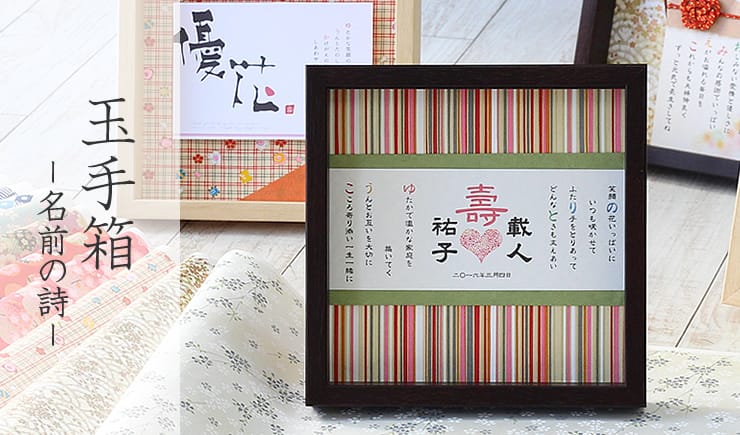 玉手箱
ー名前の詩ー
優花
笑顔の花いっぱいに
いつも咲かせて
ふたり手をとりあって
どんなときも支えあい
載人
壽
祐子
二〇一六年三月四日
ゆたかで温かな家庭を
描いてく
うんとお互いを大切に
こころ寄り添い一生一緒に
これからも夫婦仲良く
ずっと元気で長生きしてね